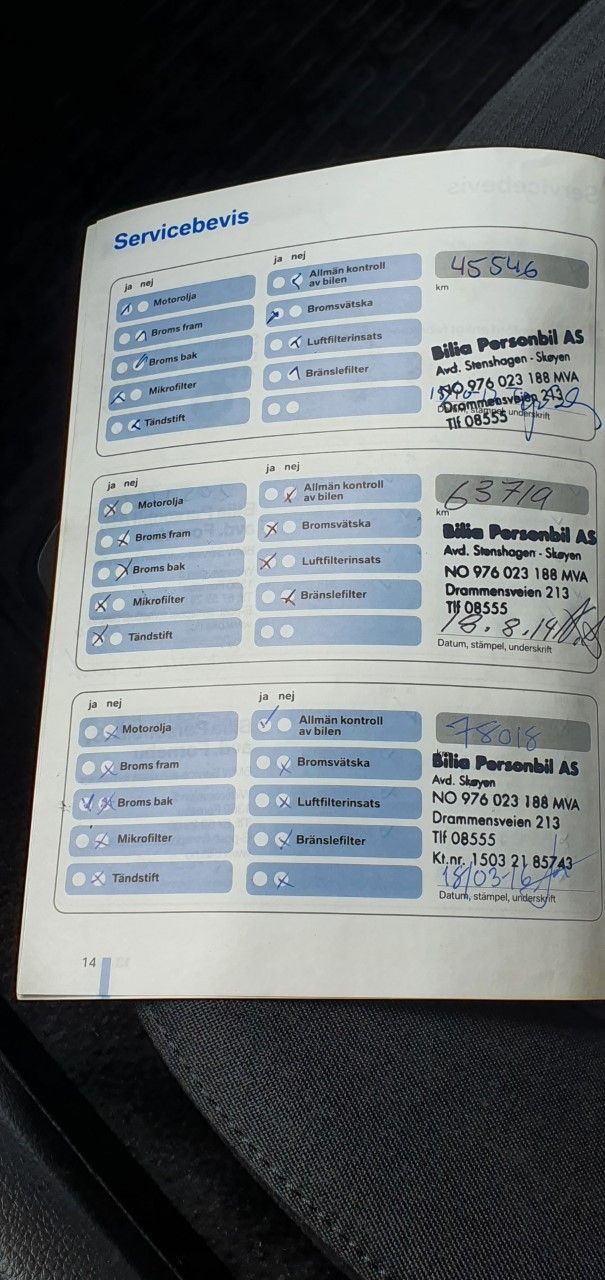 Servicebevis
ja nej
Motorolja
Broms fram
Broms bak
Mikrofilter
Tändstift
ja nej
Allmän kontroll
av bilen
Bromsvätska
Luftfilterinsats
Bränslefilter
45546
km
Bilia Personbil AS
Avd. Stenshagen - Skøyen
NO 976 023 188 MVA
Drammensveien 213
Tlf 08555
underskrift
ja nej
Motorolja
Broms fram
Broms bak
Mikrofilter
Tändstift
ja nej
Allmän kontroll
av bilen
Bromsvätska
Luftfilterinsats
Bränslefilter
63719
km
Bilia Personbil AS
Avd. Stenshagen - Skøyen
NO 976 023 188 MVA
Drammensveien 213
Tlf 08555
18.8.14
Datum, stämpel, underskrift
ja nej
Motorolja
Broms fram
Broms bak
Mikrofilter
Tändstift
ja nej
Allmän kontroll
av bilen
Bromsvätska
Luftfilterinsats
Bränslefilter
78018
Bilia Personbil AS
Avd. Skøyen
NO 976 023 188 MVA
Drammensveien 213
Tlf 08555
Kt.nr. 1503 21 85743
18/03-16
Datum, stämpel, underskrift
14